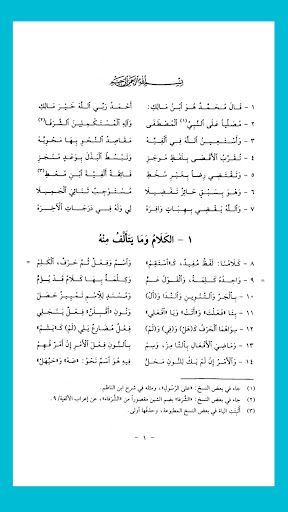 بِسْمِ اللهِ الرَّحْمٰنِ الرَّحِيمِ
١ - قَالَ مُحَمَّدٌ هُوَ ابْنُ مَالِكِ: أَحْمَدُ رَبِّي اللَّهَ خَيْرَ مَالِكِ
٢ - مُصَلِّياً عَلَى النَّبِيِّ(١) الْمُصْطَفَى وَآلِهِ الْمُسْتَكْمِلِينَ الشَّرَفَا(٢)
٣ - وَأَسْتَعِينُ اللَّهَ فِي أَلْفِيَّهْ مَقَاصِدُ النَّحْوِ بِهَا مَحْوِيَّهْ
٤ - تُقَرِّبُ الْأَقْصَى بِلَفْظٍ مُوجَزِ وَتَبْسُطُ الْبَذْلَ بِوَعْدٍ مُنْجَزِ
٥ - وَتَقْتَضِي رِضاً بِغَيْرِ سُخْطِ فَائِقَةً أَلْفِيَّةَ ابْنِ مُعْطِ(٣)
٦ - وَهْوَ بِسَبْقٍ حَائِزٌ تَفْضِيلَا مُسْتَوْجِبٌ ثَنَائِيَ الْجَمِيلَا
٧ - وَاللَّهُ يَقْضِي بِهِبَاتٍ وَافِرَهْ لِي وَلَهُ فِي دَرَجَاتِ الْآخِرَهْ
١ - الكَلَامُ وَمَا يَتَأَلَّفُ مِنْهُ
٨ - كَلَامُنَا: لَفْظٌ مُفِيدٌ، كَـ«اسْتَقِمْ» وَاسْمٌ وَفِعْلٌ ثُمَّ حَرْفٌ، الْكَلِمْ
٩ - وَاحِدُهُ كَلِمَةٌ، وَالْقَوْلُ عَمّْ وَكِلْمَةٌ بِهَا كَلَامٌ قَدْ يُؤَمّْ
١٠ - بِالْجَرِّ وَالتَّنْوِينِ وَالنِّدَا وَ(أَلْ) وَمُسْنَدٍ لِلِاسْمِ تَمْيِيزٌ حَصَلْ
١١ - بِتَا «فَعَلْتَ» وَ«أَتَتْ» وَيَا «افْعَلِي» وَنُونِ «أَقْبِلَنَّ» فِعْلٌ يَنْجَلِي
١٢ - سِوَاهُمَا الْحَرْفُ كَـ(هَلْ) وَ(فِي) وَ(لَمْ) فِعْلٌ مُضَارِعٌ يَلِي (لَمْ) كَـ«يَشَمّْ»
١٣ - وَمَاضِيَ الْأَفْعَالِ بِالتَّا مِزْ، وَسِمْ بِالنُّونِ فِعْلَ الْأَمْرِ إِنْ أَمْرٌ فُهِمْ
١٤ - وَالْأَمْرُ إِنْ لَمْ يَكُ لِلنُّونِ مَحَلّْ فِيهِ هُوَ اسْمٌ نَحْوُ: «صَهْ» وَ«حَيَّهَلْ»
(١) جاء في بعض النسخ: «على الرَّسُولِ»، ومثله في شرح ابن الناظم.
(٢) جاء في بعض النسخ: «الشُّرَفَا» بضم الشين مقصوراً من «الشُّرَفَاء»، عن إعراب الألفية/٩.
(٣) أثبتت الياء في بعض النسخ المطبوعة، وحذفها أولى.
- ١ -